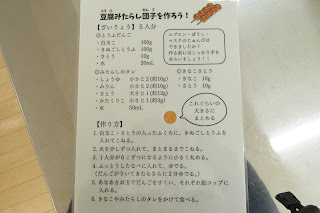 豆腐みたらし団子を作ろう！
【ざいりょう】５人分
◎とうふだんご
・白玉こ 100g
・きぬごしとうふ 100g
・さとう 5g
・水 20mL
◎みたらしのタレ
・しょうゆ 小さじ２(約10g)
・みりん 小さじ２(約10g)
・さとう 大さじ１(約12g)
・かたくりこ 小さじ１(約3g)
・水 50mL
エプロン・ぼうし・
マスクのじゅんびは
できましたか？
作る前にはしっかり手を
あらいましょう！！
◎きなこさとう
・きなこ 10g
・さとう 10g
これぐらいの
大きさに
まとめる
【作り方】
1. 白玉こ・さとうの入ったふくろに、きぬごしとうふを
入れてこねる。
2. 水を少しずつ入れて、まとまるまでこねる。
3. １人分が６こずつになるように小さく丸める。
4. ふっとうしたなべに入れて、ゆでる。
(だんごがういてきたらさらに２分ゆでる。)
5. あなあきお玉でだんごをすくい、それぞれ紙コップに
入れる。
6. きなこやみたらしのタレをかけて食べる。